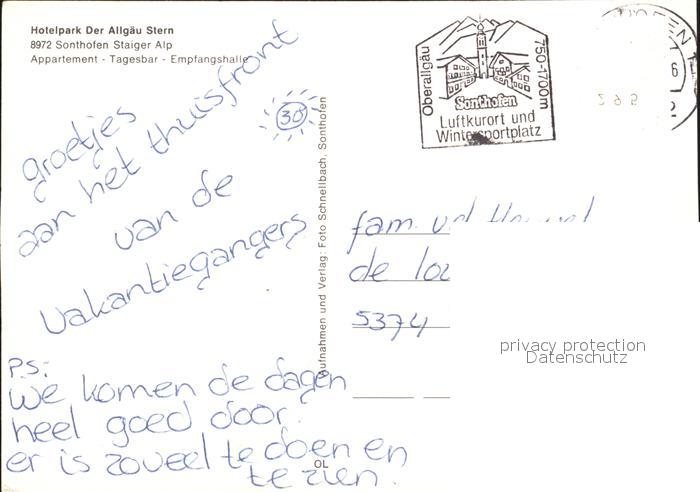 Hotelpark Der Allgäu Stern
8972 Sonthofen Staiger Alp
Appartement - Tagesbar - Empfangshalle
groetjes
aan het thuisfront
van de
vakantiegangers
30°
P.S:
We komen de dagen
heel goed door.
er is zoveel te doen en
te zien.
OL
Aufnahmen und Verlag: Foto Schnellbach, Sonthofen
Oberallgäu
750-1700m
Sonthofen
Luftkurort und
Wintersportplatz
fam. vd
de
5374
privacy protection
Datenschutz